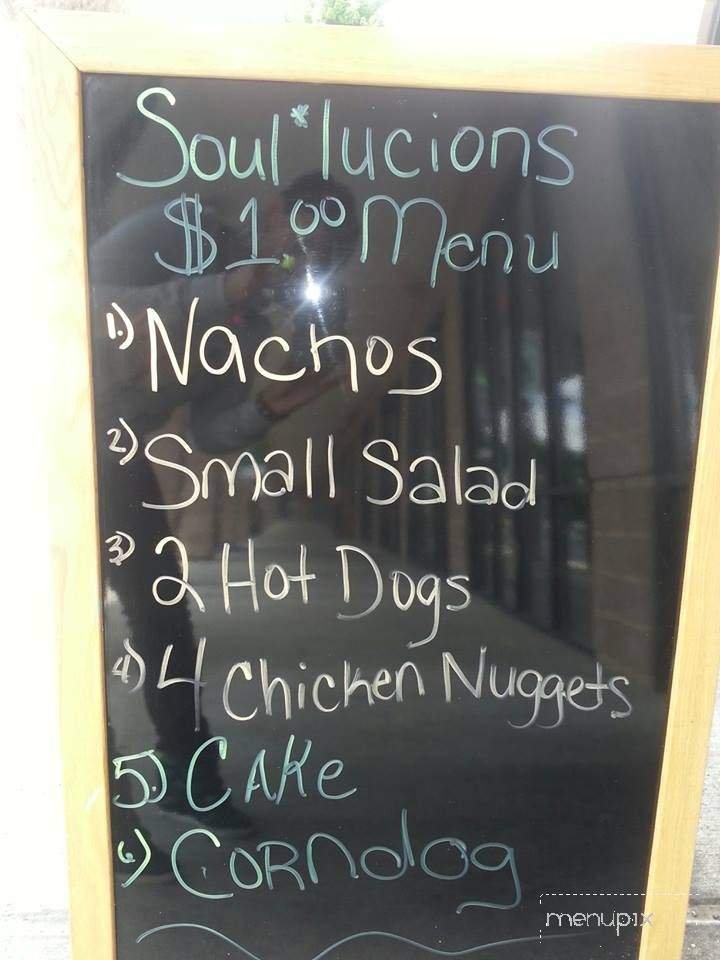 Soul*lucions
$1.00 Menu
1.) Nachos
2.) Small Salad
3.) 2 Hot Dogs
4.) 4 Chicken Nuggets
5.) CAKe
6.) CORndog
menupix